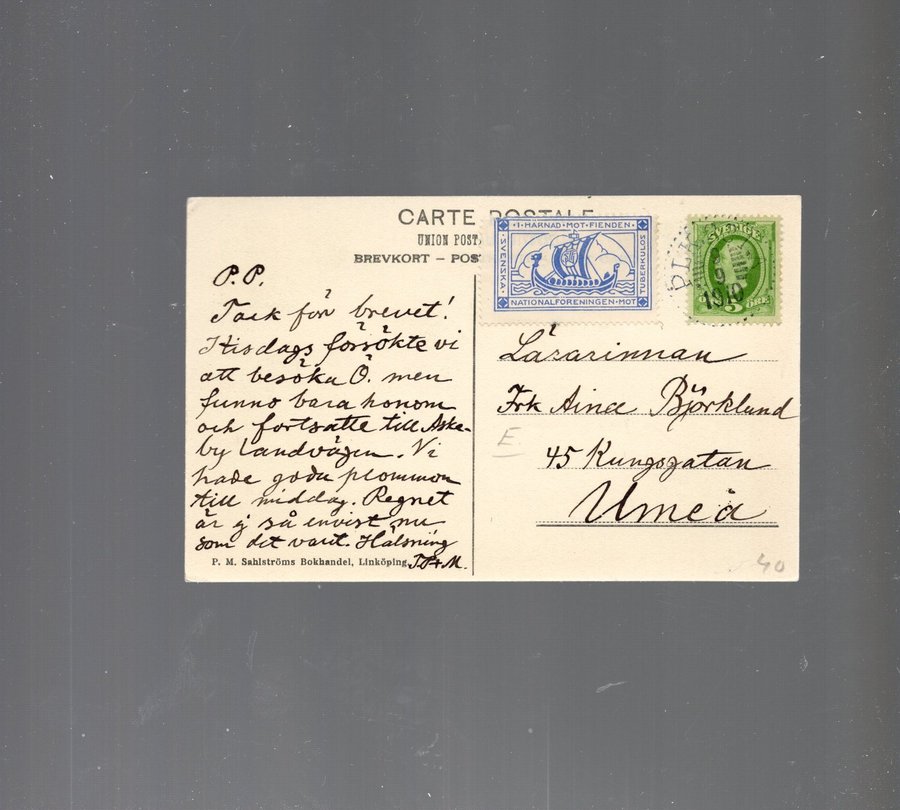 CARTE POSTALE
UNION POST
BREVKORT – POS
I·HÄRNAD·MOT·FIENDEN
SVENSKA
NATIONALFÖRENINGEN·MOT
TUBERKULOS
SVERIGE
5 ÖRE
9
1910
P.P.
Tack för brevet!
I tisdags försökte vi
att besöka Ö. men
funno bara honom
och fortsatte till Aske-
by landvägen. Vi
hade goda plommon
till middag. Regnet
är ej så envist nu
som det varit. Hälsning
P. M. Sahlströms Bokhandel, Linköping.
Lärarinnan
Frk Aina Björklund
45 Kungsgatan
Umeå
E.
40